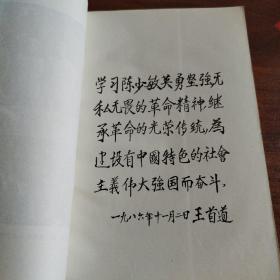 学习陈少敏英勇坚强无
私无畏的革命精神，继
承革命的光荣传统，为
建设有中國特色的社會
主義伟大強国而奋斗，
一九八六年十一月二日 王首道